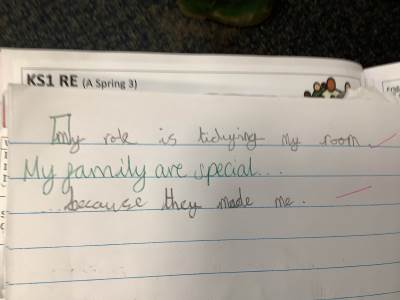 KS1 RE (A Spring 3)
my role is tidying my room.
My family are special...
...because they made me.